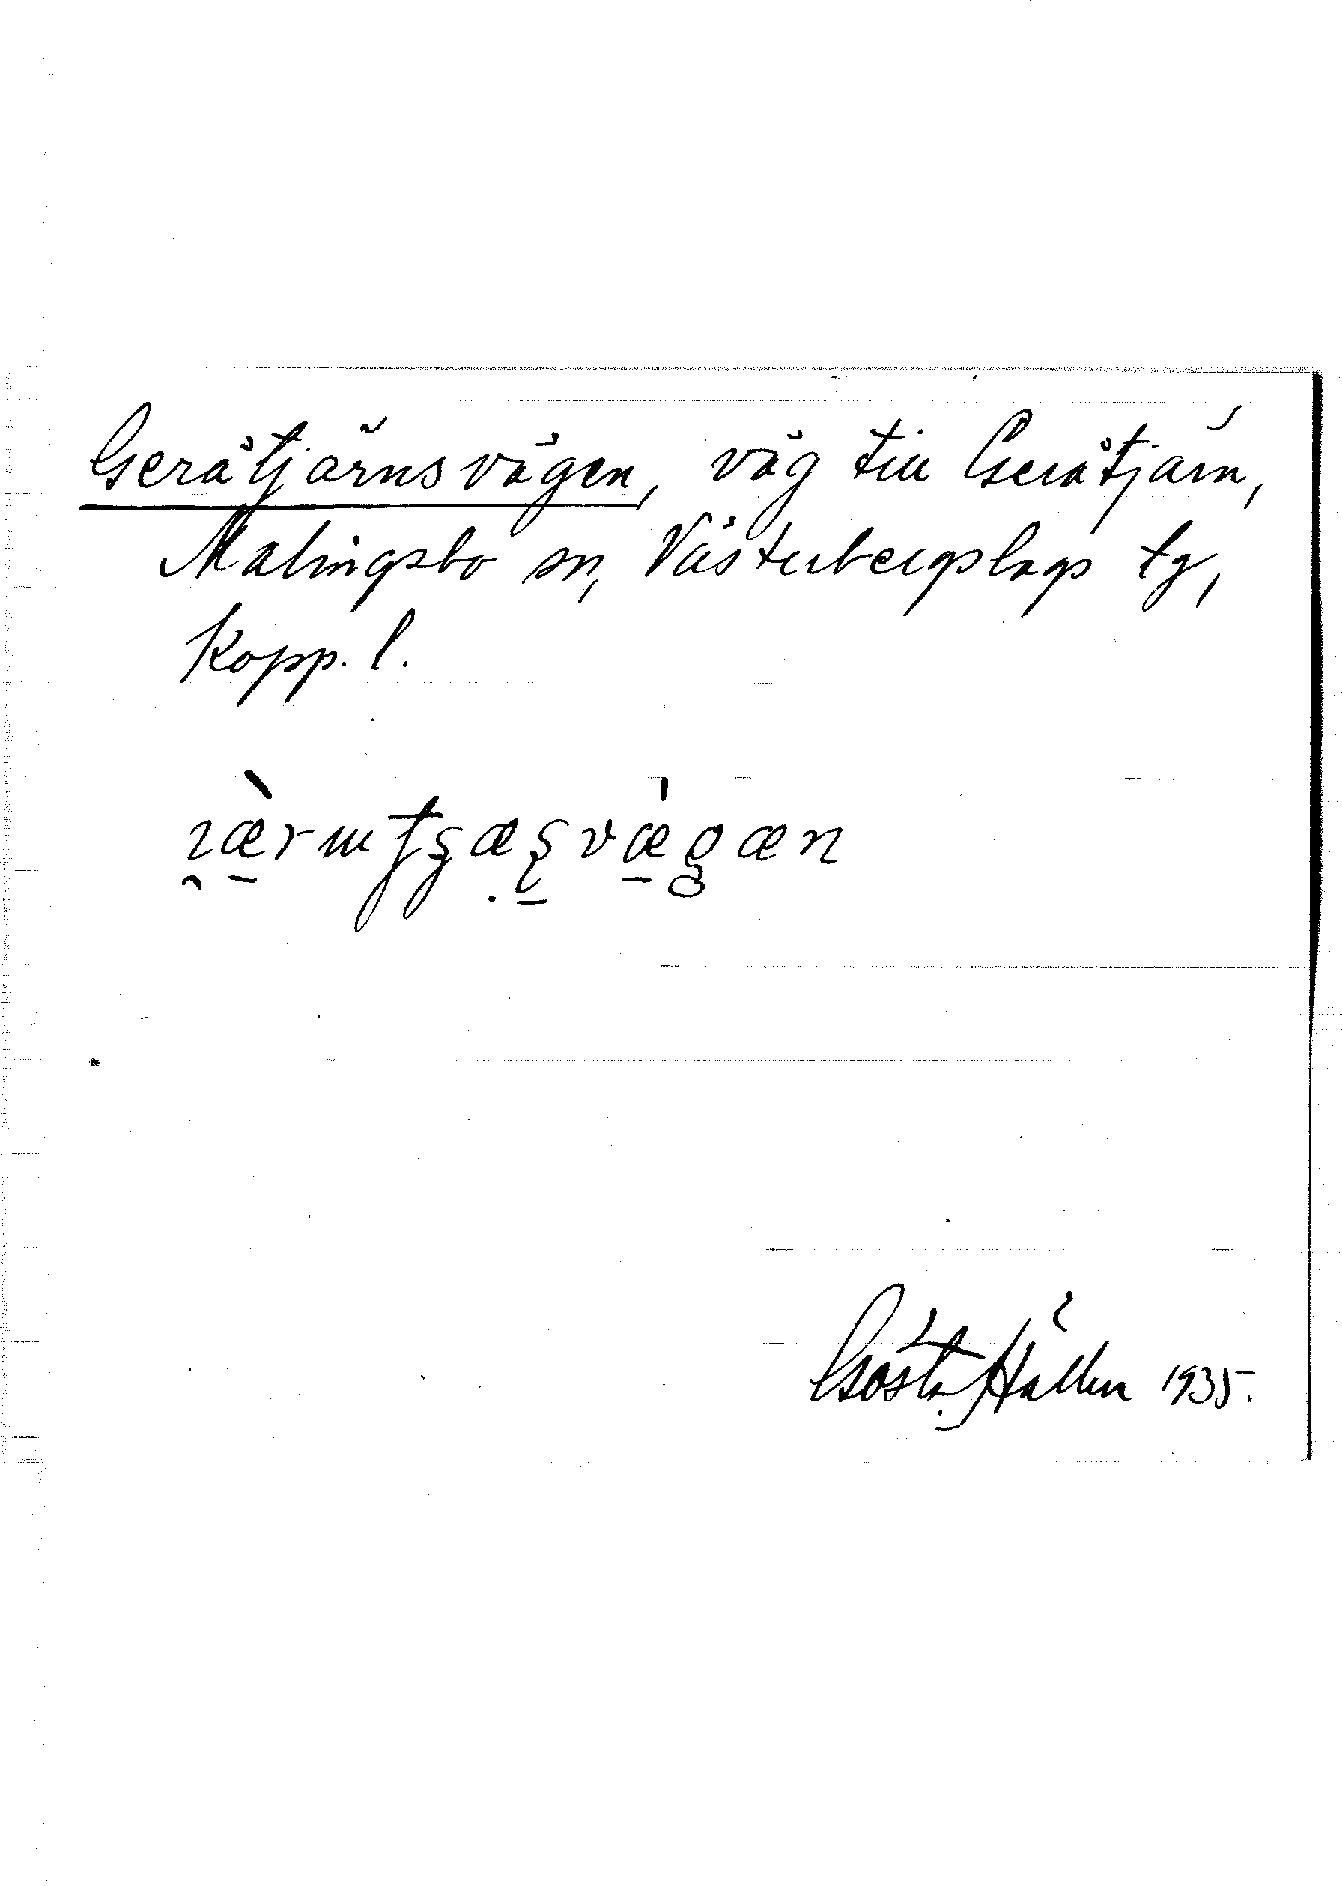 Gerätjärnsvägen, väg till Gerätjärn,
Malingsbo sn, Västerbergslags tg,
Kopp. l.
Gösta Hållén 1935.